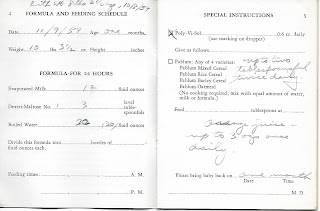 4 FORMULA AND FEEDING SCHEDULE
Date 11/9/54 Age one months
Weight 10 lbs 3½ oz Height inches
FORMULA FOR 24 HOURS
Evaporated Milk 12 fluid ounces
Dextri-Maltose No. 1 3 level tablespoonfuls
Boiled Water 20 fluid ounces
Divide this formula into bottles of
fluid ounces each.
Feeding times: A. M.
P. M.
SPECIAL INSTRUCTIONS 5
Poly-Vi-Sol 0.6 cc. daily
(use marking on dropper)
Give as follows
Pablum: Any of 4 varieties: up to two
Pablum Mixed Cereal tablespoonfuls
Pablum Rice Cereal twice daily
Pablum Barley Cereal
Pablum Oatmeal
(No cooking required; mix with equal amount of water,
milk or formula.)
Feed tablespoons at
juice -
up to 3 ozs once
daily.
Please bring baby back on one month
Date Time
M. D.